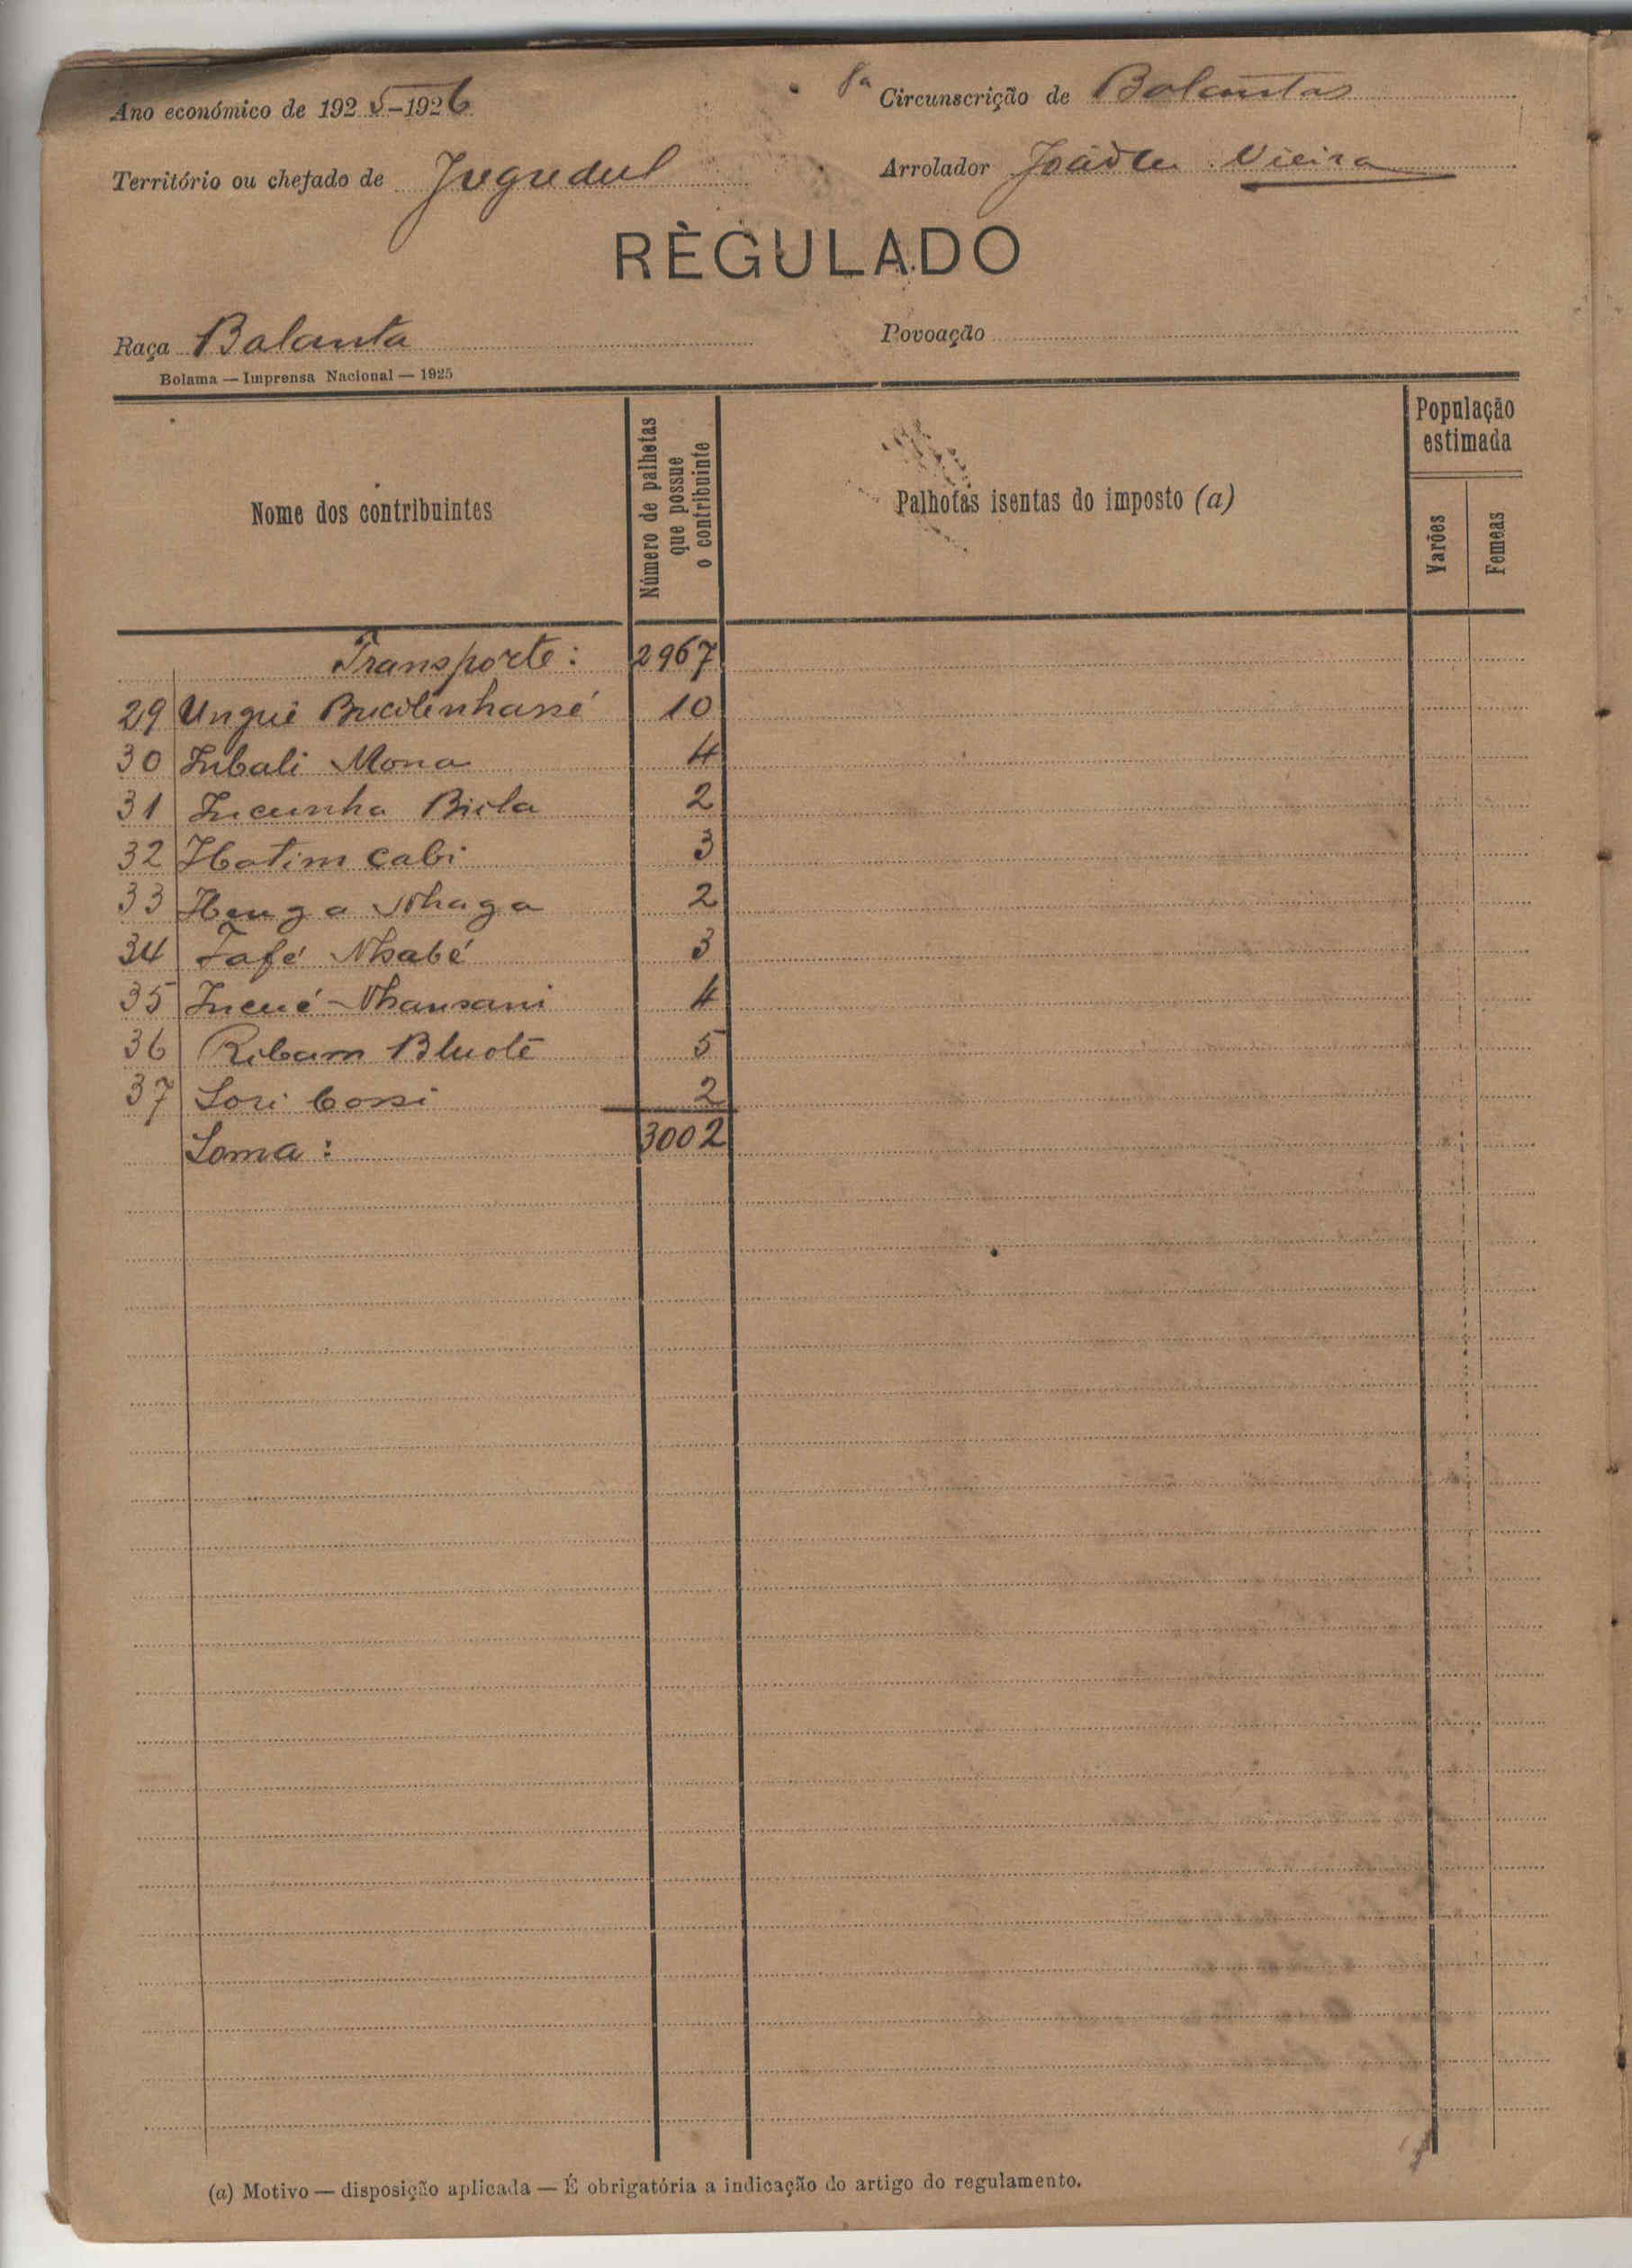 Ano económico de 1925-1926
8ª Circunscrição de Balantas
Território ou chefado de Jugudul
Arrolador João Vieira
RÈGULADO
Raça Balanta
Povoação
Bolama — Imprensa Nacional — 1925
Nome dos contribuintes
Número de palhotas que possue o contribuinte
Palhotas isentas do imposto (a)
População estimada
Varões
Femeas
Transporte: 2967
29 Ungué 10
30 Inbali Mona 4
31 Incunha Biila 2
32 Hatim Cabi 3
33 Henga Nhaga 2
34 Tafé Nhabé 3
35 Incué Nhansani 4
36 Ribam Bluoté 5
37 Sori Cossi 2
Soma: 3002
(a) Motivo — disposição aplicada — É obrigatória a indicação do artigo do regulamento.